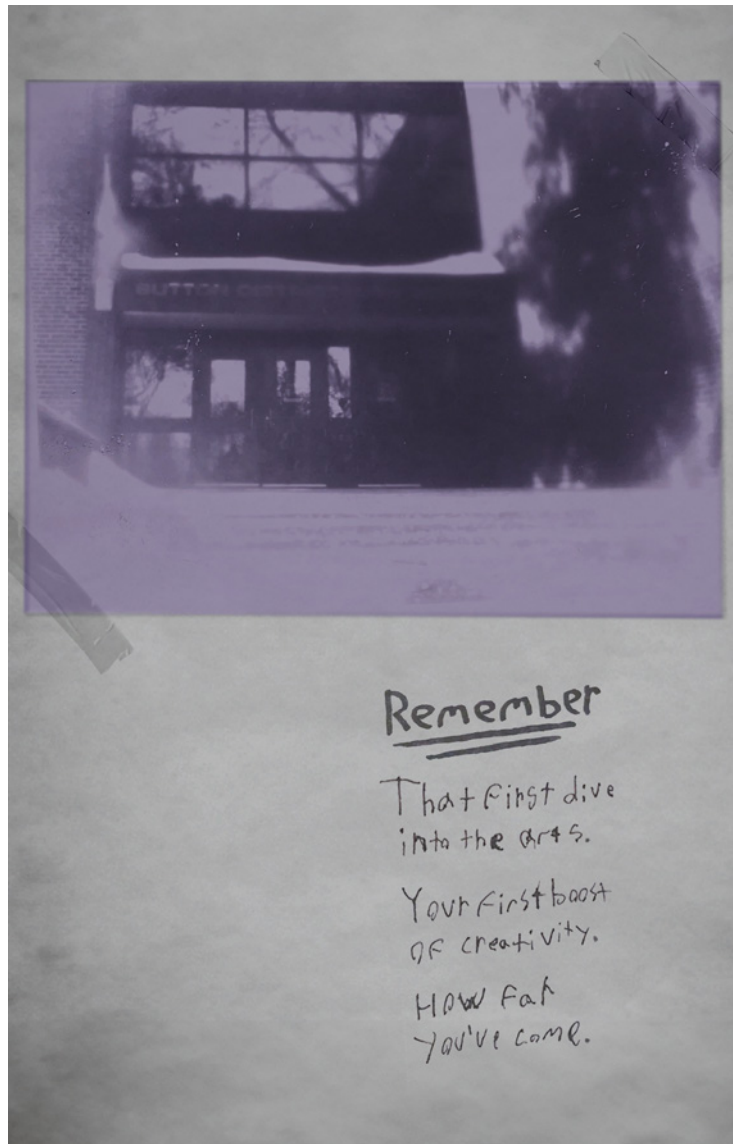 BUTTON
Remember
That first dive
into the arts.
Your first boost
of creativity.
How far
you've come.